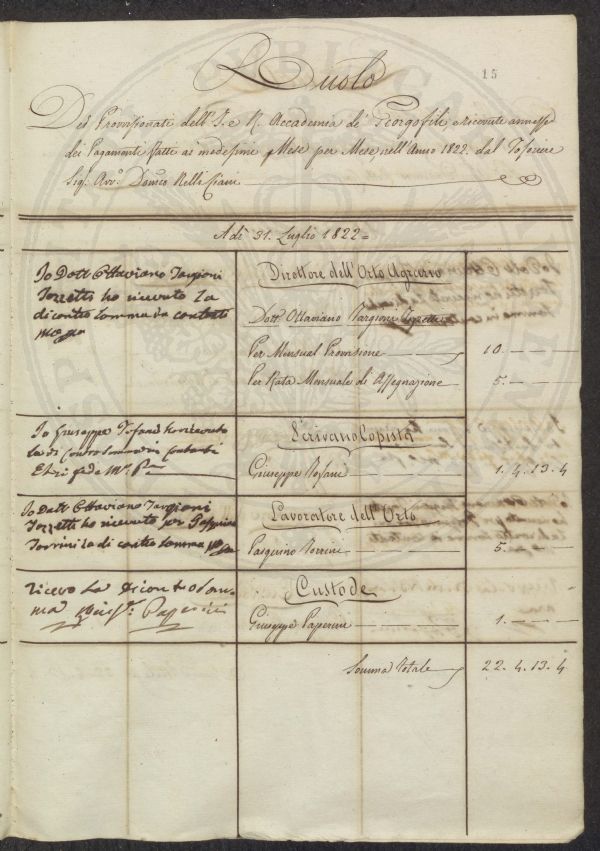 15
Ruolo
Dei Provisionati dell'I. e R. Accademia de' Georgofili, e ricevute annesse
dei Pagamenti fatti ai medesimi Mese per Mese, nell'Anno 1822. dal Tesoriere
Sig: Avv:
Adì 31. Luglio 1822=
Io Dott Ottaviano Targioni
Tozzetti ho ricevuto la
di contro somma in contanti
Direttore dell'Orto Agrario
Dott. Ottaviano Targioni Tozzetti
Per Mensual Provisione 10. — —
Per Rata Mensuale di Assegnazione 5. — —
Io Giuseppe Tofani ho ricevuto
la di contro somma in contanti
Ed in fede M.
Scrivano Copista
Giuseppe Tofani 1. 4. 13. 4
Io Dott Ottaviano Targioni
Tozzetti ho ricevuto per Pasquino
Torrini la di contro somma
Lavoratore dell'Orto
Pasquino Torrini 5. — —
ricevo la di contro som-
ma Paperini
Custode
Giuseppe Paperini 1. — —
Somma Totale 22. 4. 13. 4